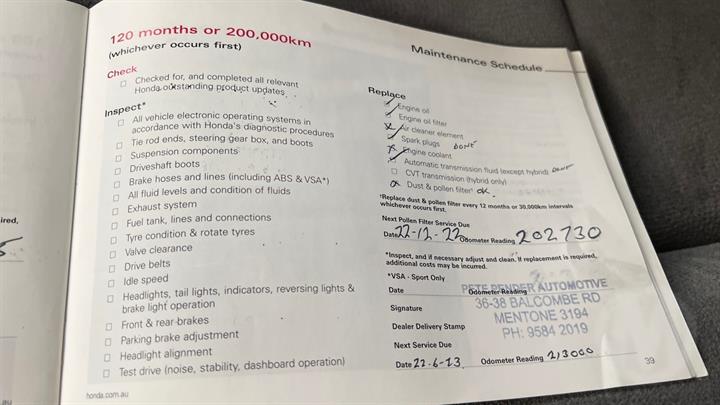 120 months or 200,000km
(whichever occurs first)
Maintenance Schedule
Check
Checked for, and completed all relevant
Honda outstanding product updates.
Inspect*
All vehicle electronic operating systems in
accordance with Honda's diagnostic procedures
Tie rod ends, steering gear box, and boots
Suspension components
Driveshaft boots
Brake hoses and lines (including ABS & VSA*)
All fluid levels and condition of fluids
Exhaust system
Fuel tank, lines and connections
Tyre condition & rotate tyres
Valve clearance
Drive belts
Idle speed
Headlights, tail lights, indicators, reversing lights &
brake light operation
Front & rear brakes
Parking brake adjustment
Headlight alignment
Test drive (noise, stability, dashboard operation)
honda.com.au
Replace
Engine oil
Engine oil filter
Air cleaner element
Spark plugs DONE
Engine coolant
Automatic transmission fluid (except hybrid) DONE
CVT transmission (hybrid only)
Dust & pollen filter† OK.
†Replace dust & pollen filter every 12 months or 30,000km intervals
whichever occurs first.
Next Pollen Filter Service Due
Date 22-12-22 Odometer Reading 202730
*Inspect, and if necessary adjust and clean. If replacement is required,
additional costs may be incurred.
*VSA - Sport Only
Date Odometer Reading
PETE BENDER AUTOMOTIVE
36-38 BALCOMBE RD
MENTONE 3194
PH: 9584 2019
Signature
Dealer Delivery Stamp
Next Service Due
Date 22-6-23 Odometer Reading 213000
39
ired,
.au